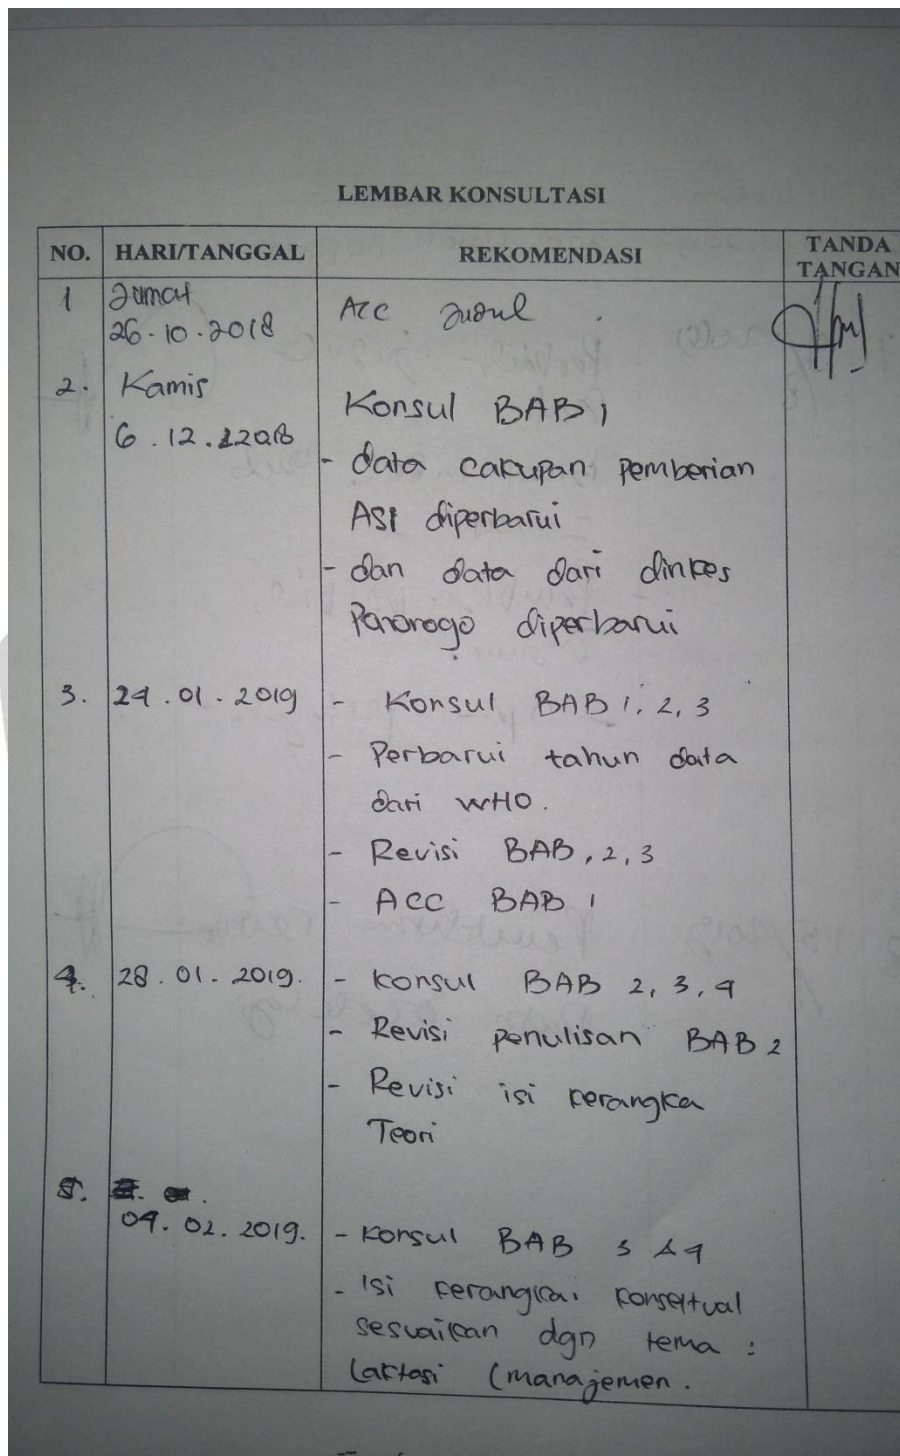 LEMBAR KONSULTASI
NO. HARI/TANGGAL REKOMENDASI TANDA TANGAN
1 Jumat Acc Judul
26.10.2018
2. Kamis Konsul BAB 1
6.12.2018
- data cakupan pemberian
ASI diperbarui
- dan data dari dinkes
Ponorogo diperbarui
3. 24.01.2019 - Konsul BAB 1, 2, 3
- Perbarui tahun data
dari WHO.
- Revisi BAB, 2, 3
- ACC BAB 1
4. 28.01.2019. - Konsul BAB 2, 3, 4
- Revisi penulisan BAB 2
- Revisi isi kerangka
Teori
5.
04.02.2019. - Konsul BAB 3 & 4
- Isi kerangka konseptual
sesuaikan dgn tema :
Laktasi (manajemen.